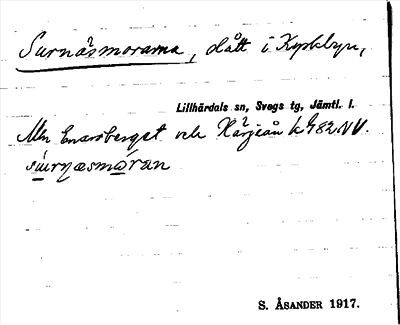 Surnäsmorarna, slått i Kyrkbyn,
Lillhärdals sn, Svegs tg, Jämtl. l.
Mln Enarsberget och Härjeån k 482 NV.
súrnæsmòran
S. ÅSANDER 1917.